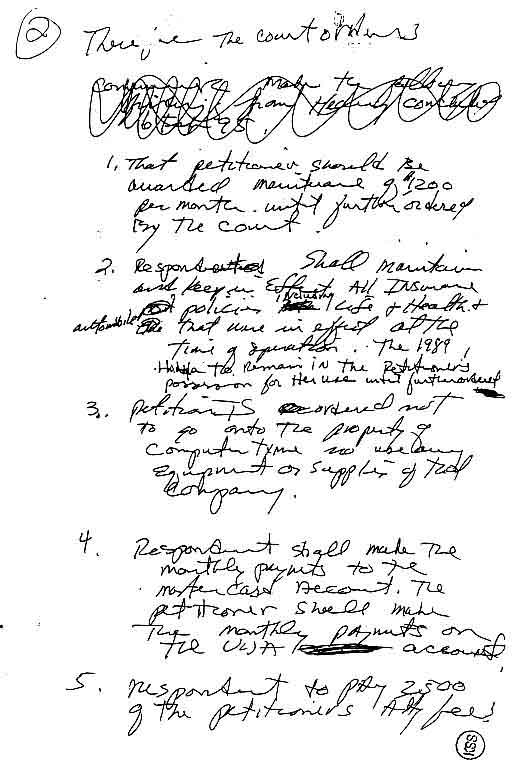 2
Therefore the court orders
1. That petitioner should be
awarded maintenance of $1200
per month until further ordered
By the court.
2. Respondent Shall maintain
and keep in Effect All Insurance
policies including Life & Health &
automobile that were in effect at the
time of separation. The 1989
Honda to remain in the Petitioner's
possession for Her use until further ordered
3. Petitioner is ordered not
to go onto the property of
Computer Tyme no use any
Equipment or Supplies of that
Company.
4. Respondent shall make the
monthly payments to the
mastercard Account. The
petitioner shall make
The monthly payments on
the VISA account
5. Respondent to pay 2500
of the petitioner's Atty fees